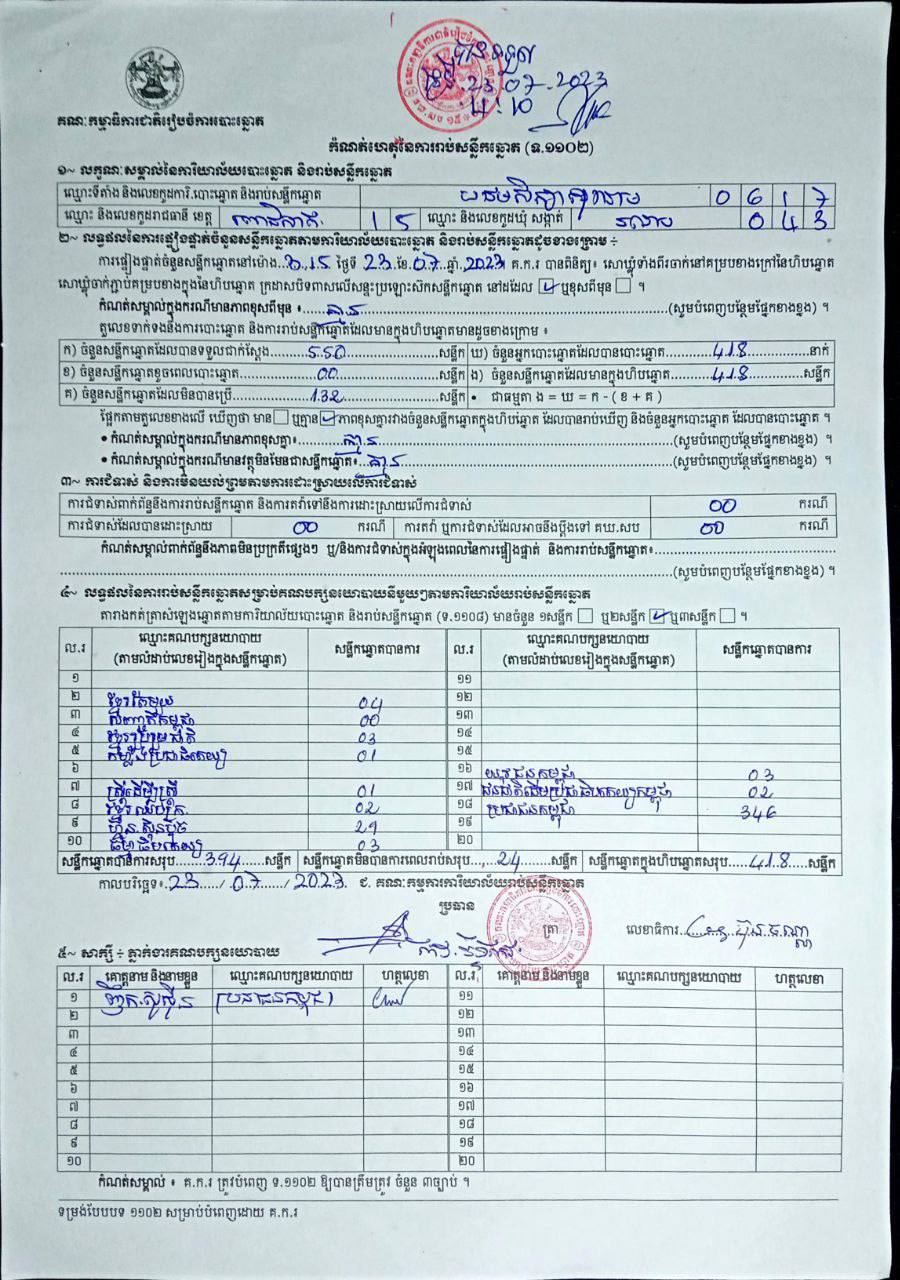 បានទទួល
ថ្ងៃ.23.07.2023
4:10
គណៈកម្មាធិការជាតិរៀបចំការបោះឆ្នោត
កំណត់ហេតុនៃការរាប់សន្លឹកឆ្នោត (ទ.១១០២)
១~ លក្ខណៈសម្គាល់នៃការិយាល័យបោះឆ្នោត និងរាប់សន្លឹកឆ្នោត
ឈ្មោះទីតាំង និងលេខកូដការិ.បោះឆ្នោត និងរាប់សន្លឹកឆ្នោត 0 6 1 7
ឈ្មោះ និងលេខកូដរាជធានី ខេត្ត ពោធិ៍សាត់ 1 5 ឈ្មោះ និងលេខកូដឃុំ សង្កាត់ 0 4 3
២~ លទ្ធផលនៃការផ្ទៀងផ្ទាត់ចំនួនសន្លឹកឆ្នោតតាមការិយាល័យបោះឆ្នោត និងរាប់សន្លឹកឆ្នោតដូចខាងក្រោម ÷
ការផ្ទៀងផ្ទាត់ចំនួនសន្លឹកឆ្នោតនៅម៉ោង 3:15 ថ្ងៃទី 23 ខែ 07 ឆ្នាំ 2023 គ.ក.រ បានពិនិត្យ៖ សោឃ្លុំទាំងពីរចាក់នៅគម្របខាងក្រៅនៃហិបឆ្នោត
សោឃ្លុំចាក់ភ្ជាប់គម្របខាងក្នុងនៃហិបឆ្នោត ក្រដាសបិទពាសលើសន្ទះប្រឡោះសិកសន្លឹកឆ្នោត នៅដដែល ✓ ឬខុសពីមុន ។
កំណត់សម្គាល់ក្នុងករណីមានភាពខុសពីមុន ៖ គ្មាន (សូមបំពេញបន្ថែមផ្នែកខាងខ្នង) ។
តួលេខទាក់ទងនឹងការបោះឆ្នោត និងការរាប់សន្លឹកឆ្នោតដែលមានក្នុងហិបឆ្នោតមានដូចខាងក្រោម ៖
ក) ចំនួនសន្លឹកឆ្នោតដែលបានទទួលជាក់ស្តែង 550 សន្លឹក ឃ) ចំនួនអ្នកបោះឆ្នោតដែលបានបោះឆ្នោត 418 នាក់
ខ) ចំនួនសន្លឹកឆ្នោតខូចពេលបោះឆ្នោត 00 សន្លឹក ង) ចំនួនសន្លឹកឆ្នោតដែលមានក្នុងហិបឆ្នោត 418 សន្លឹក
គ) ចំនួនសន្លឹកឆ្នោតដែលមិនបានប្រើ 132 សន្លឹក • ជាធម្មតា ង = ឃ = ក - ( ខ + គ )
ផ្អែកតាមតួលេខខាងលើ ឃើញថា មាន ឬគ្មាន ✓ ភាពខុសគ្នារវាងចំនួនសន្លឹកឆ្នោតក្នុងហិបឆ្នោត ដែលបានរាប់ឃើញ និងចំនួនអ្នកបោះឆ្នោត ដែលបានបោះឆ្នោត ។
• កំណត់សម្គាល់ក្នុងករណីមានភាពខុសគ្នា៖ គ្មាន (សូមបំពេញបន្ថែមផ្នែកខាងខ្នង) ។
• កំណត់សម្គាល់ក្នុងករណីមានវត្ថុមិនមែនជាសន្លឹកឆ្នោត៖ គ្មាន (សូមបំពេញបន្ថែមផ្នែកខាងខ្នង) ។
៣~ ការជំទាស់ និងការមិនយល់ព្រមតាមការដោះស្រាយលើការជំទាស់
ការជំទាស់ពាក់ព័ន្ធនឹងការរាប់សន្លឹកឆ្នោត និងការតវ៉ាទៅនឹងការដោះស្រាយលើការជំទាស់ 00 ករណី
ការជំទាស់ដែលបានដោះស្រាយ 00 ករណី ការតវ៉ា ឬការជំទាស់ដែលអាចនឹងប្តឹងទៅ គឃ.សប 00 ករណី
កំណត់សម្គាល់ពាក់ព័ន្ធនឹងភាពមិនប្រក្រតីផ្សេងៗ ឬ/និងការជំទាស់ក្នុងអំឡុងពេលនៃការផ្ទៀងផ្ទាត់ និងការរាប់សន្លឹកឆ្នោត៖
(សូមបំពេញបន្ថែមផ្នែកខាងខ្នង) ។
៤~ លទ្ធផលនៃការរាប់សន្លឹកឆ្នោតសម្រាប់គណបក្សនយោបាយនីមួយៗតាមការិយាល័យរាប់សន្លឹកឆ្នោត
តារាងកត់ត្រាសំឡេងឆ្នោតតាមការិយាល័យបោះឆ្នោត និងរាប់សន្លឹកឆ្នោត (ទ.១១០៨) មានចំនួន ១សន្លឹក ឬ២សន្លឹក ✓ ឬ៣សន្លឹក ។
ល.រ ឈ្មោះគណបក្សនយោបាយ (តាមលំដាប់លេខរៀងក្នុងសន្លឹកឆ្នោត) សន្លឹកឆ្នោតបានការ ល.រ ឈ្មោះគណបក្សនយោបាយ (តាមលំដាប់លេខរៀងក្នុងសន្លឹកឆ្នោត) សន្លឹកឆ្នោតបានការ
១ ១១
២ ខ្មែរតែមួយ 04 ១២
៣ 00 ១៣
៤ 03 ១៤
៥ កម្លាំងប្រជាធិបតេយ្យ 01 ១៥
៦ ១៦ យុវជនកម្ពុជា 03
៧ ស្ត្រីដើម្បីស្ត្រី 01 ១៧ 02
៨ 02 ១៨ ប្រជាជនកម្ពុជា 346
៩ ហ៊្វុនស៊ិនប៉ិច 29 ១៩
១០ 03 ២០
សន្លឹកឆ្នោតបានការសរុប 394 សន្លឹក សន្លឹកឆ្នោតមិនបានការពេលរាប់សរុប 24 សន្លឹក សន្លឹកឆ្នោតក្នុងហិបឆ្នោតសរុប 418 សន្លឹក
កាលបរិច្ឆេទ៖ 23 / 07 / 2023 ជ. គណៈកម្មការការិយាល័យរាប់សន្លឹកឆ្នោត
ប្រធាន
ត្រា លេខាធិការ
៥~ សាក្សី ÷ ភ្នាក់ងារគណបក្សនយោបាយ
ល.រ គោត្តនាម និងនាមខ្លួន ឈ្មោះគណបក្សនយោបាយ ហត្ថលេខា ល.រ គោត្តនាម និងនាមខ្លួន ឈ្មោះគណបក្សនយោបាយ ហត្ថលេខា
១ ប្រជាជនកម្ពុជា ១១
២ ១២
៣ ១៣
៤ ១៤
៥ ១៥
៦ ១៦
៧ ១៧
៨ ១៨
៩ ១៩
១០ ២០
កំណត់សម្គាល់ ៖ គ.ក.រ ត្រូវបំពេញ ទ.១១០២ ឱ្យបានត្រឹមត្រូវ ចំនួន ៣ច្បាប់ ។
ទម្រង់បែបបទ ១១០២ សម្រាប់បំពេញដោយ គ.ក.រ